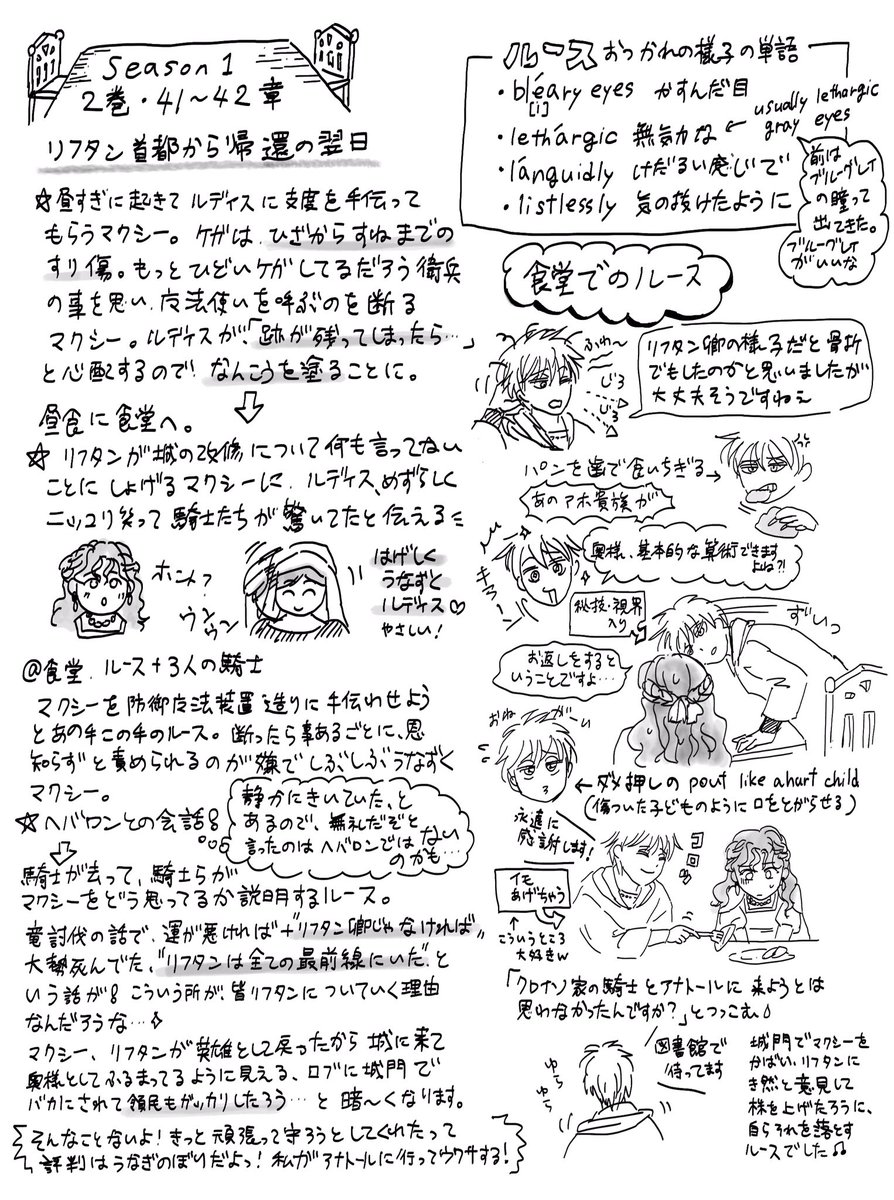 Season 1
2巻・41〜42章
リフタン首都から帰還の翌日
☆昼すぎに起きてルディスに支度を手伝って
もらうマクシー。ケガは、ひざからすねまでの
すり傷。もっとひどいケガしてるだろう衛兵
の事を思い、魔法使いを呼ぶのを断る
マクシー。ルディスが、「跡が残ってしまったら…」
と心配するので、なんこうを塗ることに。
昼食に食堂へ。
☆リフタンが城の改修について何も言ってない
ことにしょげるマクシーに、ルディス、めずらしく
ニッコリ笑って騎士たちが驚いてたと伝える
ホント?
ウンウン
はげしく
うなずく
ルディス♡
やさしい!
@食堂、ルース+3人の騎士
マクシーを防御魔法装置造りに手伝わせよう
とあの手この手のルース。断ったら事あるごとに、恩
知らずと責められるのが嫌でしぶしぶうなずく
マクシー。
☆ヘバロンとの会話
静かにきいていた、と
あるので、無礼だぞと
言ったのはヘバロンではない
のかも…
騎士が去って、騎士らが
マクシーをどう思ってるか説明するルース。
竜討伐の話で、運が悪ければ+"リフタン卿じゃなければ"
大勢死んでた、"リフタンは全ての最前線にいた"と
いう話が! こういう所が、皆リフタンについていく理由
なんだろうな…
マクシー、リフタンが英雄として戻ったから城に来て
奥様としてふるまってるように見える、ロブに城門で
バカにされて領民もガッカリしたろう…と暗〜くなります。
そんなことないよ!きっと頑張って守ろうとしてくれたって
評判はうなぎのぼりだよっ!私がアナトールに行ってウワサする!
ルースおつかれの様子の単語
・bléary eyes かすんだ目
[i]
・lethárgic 無気力な ← usually lethargic
gray eyes
・lánguidly けだるい感じで
・lístlessly 気の抜けたように
前は
ブルーグレイ
の瞳って
出てきた。
ブルーグレイ
がいいな
食堂でのルース
ふわ〜
じろ
じろ
リフタン卿の様子だと骨折
でもしたのかと思いましたが
大丈夫そうですねぇ
パンを歯で食いちぎる→
あのアホ貴族が
キラ〜!
奥様、基本的な算術できます
よね?!
秘技・視界
入り
ずいっ
お返しをすると
いうことですよ…
おねがーい
←ダメ押しの pout like a hurt child
(傷ついた子どものように口をとがらせる)
永遠に
感謝します!
イモ
あげちゃう
↑
こういうところ
大好きw
コロ
「クロイソ家の騎士とアナトールに来ようとは
思わなかったんですか?」とつっこむ
図書館で
待ってます
ゆら
ゆら
城門でマクシーを
かばい、リフタンに
き然と意見して
株を上げたろうに、
自らそれを落とす
ルースでした♫